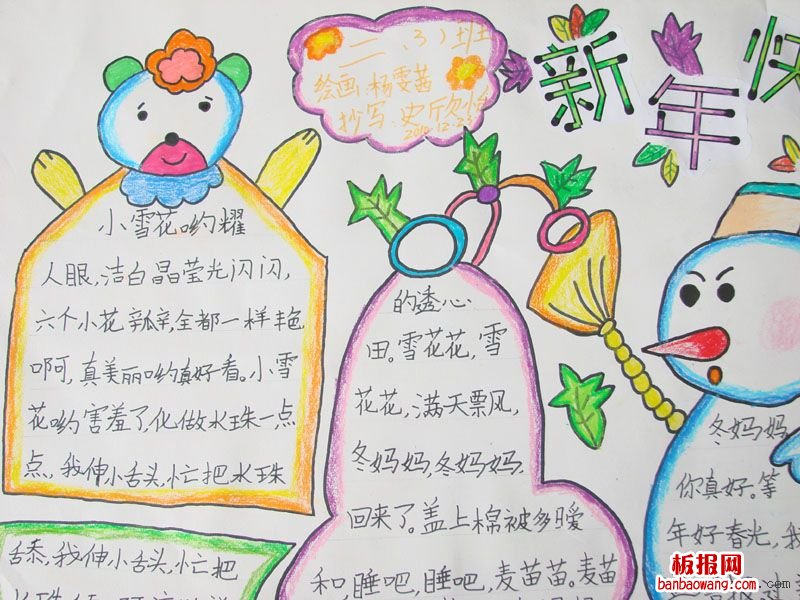 二（3）班
绘画:杨雯茜
抄写:史欣怡
2010.12.23
新年快
小雪花哟耀
人眼,洁白晶莹光闪闪,
六个小花瓣,全都一样
啊呵,真美丽哟真好看。小雪
花哟害羞了,化做水珠一点
点,我伸小舌头,忙把水珠
舔,我伸小舌头,忙把
的透心
田。雪花花,雪
花花,满天票风,
冬妈妈,冬妈妈
回来了。盖上棉被多暖
和睡吧,睡吧,麦苗苗。麦苗
冬妈妈
你真好。等
年好春光,我
板报网
banbaowang.com